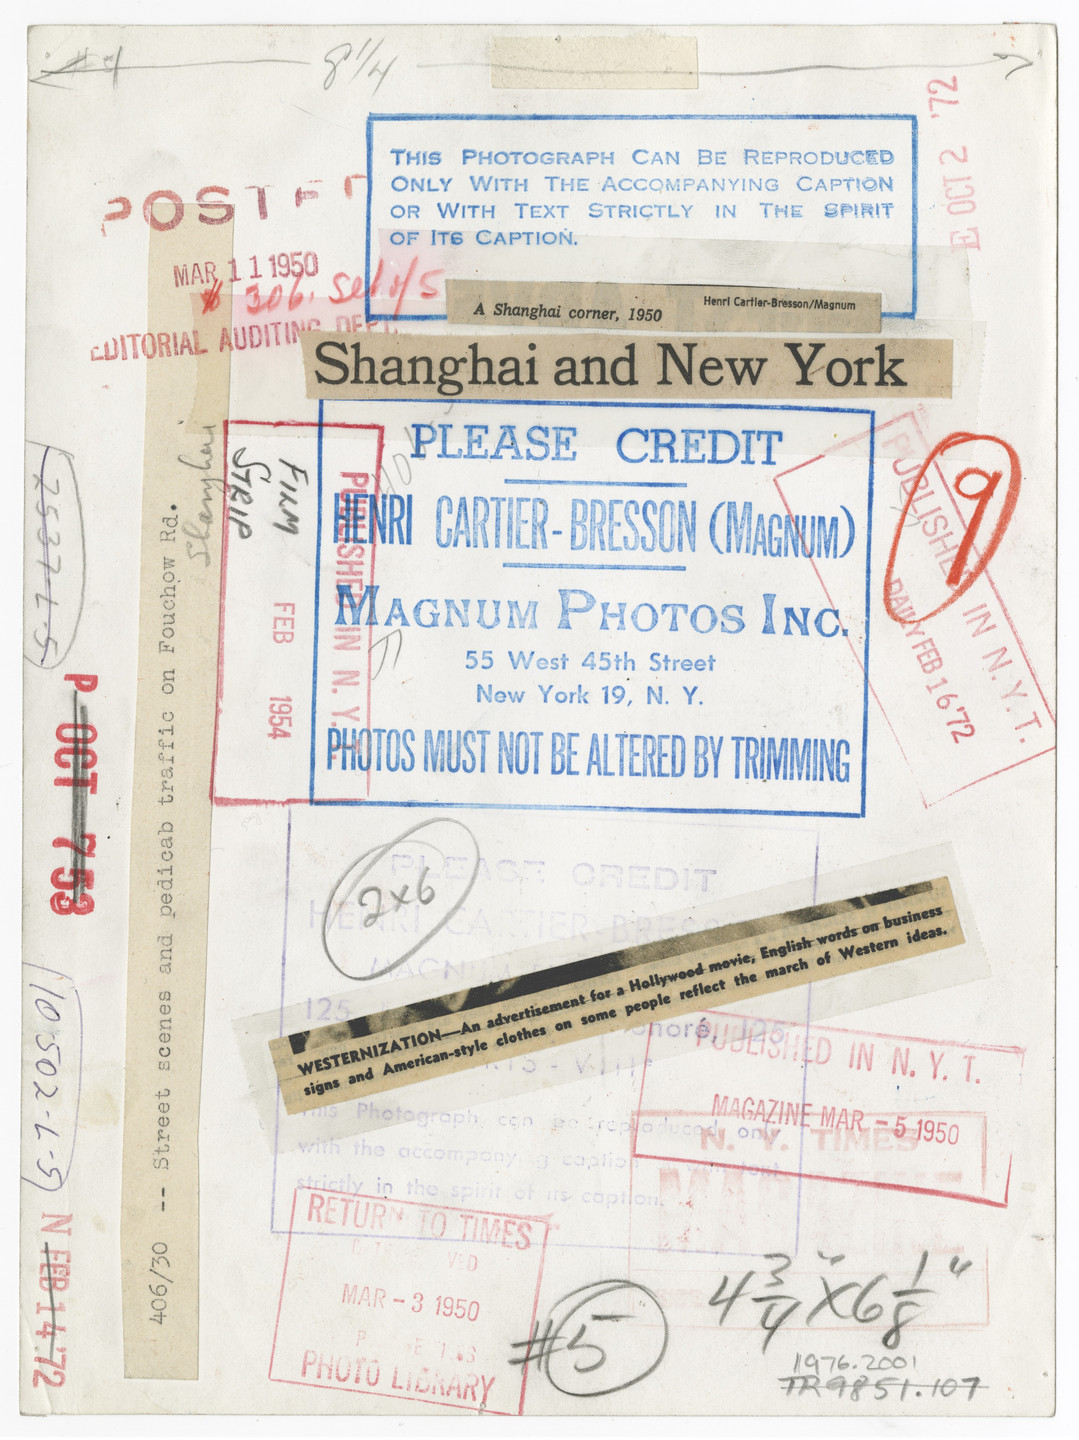 8 1/4
E OCT 2 '72
THIS PHOTOGRAPH CAN BE REPRODUCED
ONLY WITH THE ACCOMPANYING CAPTION
OR WITH TEXT STRICTLY IN THE SPIRIT
OF ITS CAPTION.
POSTED
MAR 11 1950
306. Set 1/5
EDITORIAL AUDITING DEPT.
A Shanghai corner, 1950
Henri Cartier-Bresson/Magnum
Shanghai and New York
PLEASE CREDIT
HENRI CARTIER-BRESSON (MAGNUM)
MAGNUM PHOTOS INC.
55 West 45th Street
New York 19, N. Y.
PHOTOS MUST NOT BE ALTERED BY TRIMMING
FILM
STRIP
PUBLISHED IN N. Y. T.
FEB 1954
Shanghai
406/30 -- Street scenes and pedicab traffic on Fouchow Rd.
9
PUBLISHED IN N.Y.T.
DAILY FEB 16 '72
7537-L-5
P OCT 7 53
10502-L-5
N FEB 14 '72
2x6
PLEASE CREDIT
HENRI CARTIER-BRESSON
MAGNUM
125
Honoré, 125
PARIS - VIII
This Photograph can be reproduced only
with the accompanying caption text
strictly in the spirit of its caption.
WESTERNIZATION—An advertisement for a Hollywood movie, English words on business
signs and American-style clothes on some people reflect the march of Western ideas.
PUBLISHED IN N. Y. T.
MAGAZINE MAR - 5 1950
N. Y. TIMES
RETURN TO TIMES
MAR - 3 1950
PHOTO LIBRARY
#5
4 3/4" x 6 1/8"
1976.2001
TR9851.107